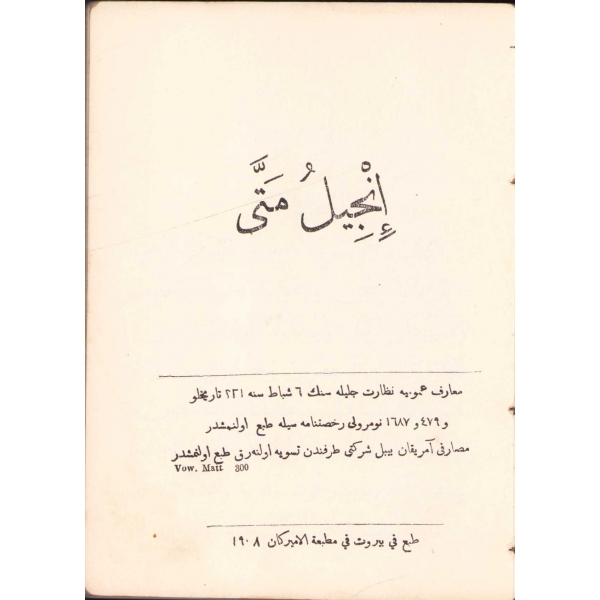 إِنْجِيلُ مَتَّى
معارف عمومیه نظارت جلیله سنك ٦ شباط سنه ٢٢١ تاریخلو
و ٤٧٩ و ١٦٨٧ نومرولی رخصتنامه سیله طبع اولنمشدر
مصارفی آمریقان بیبل شرکتی طرفندن تسویه اولنه رق طبع اولنمشدر
Vow. Matt 300
طبع في بيروت في مطبعة الاميركان ١٩٠٨